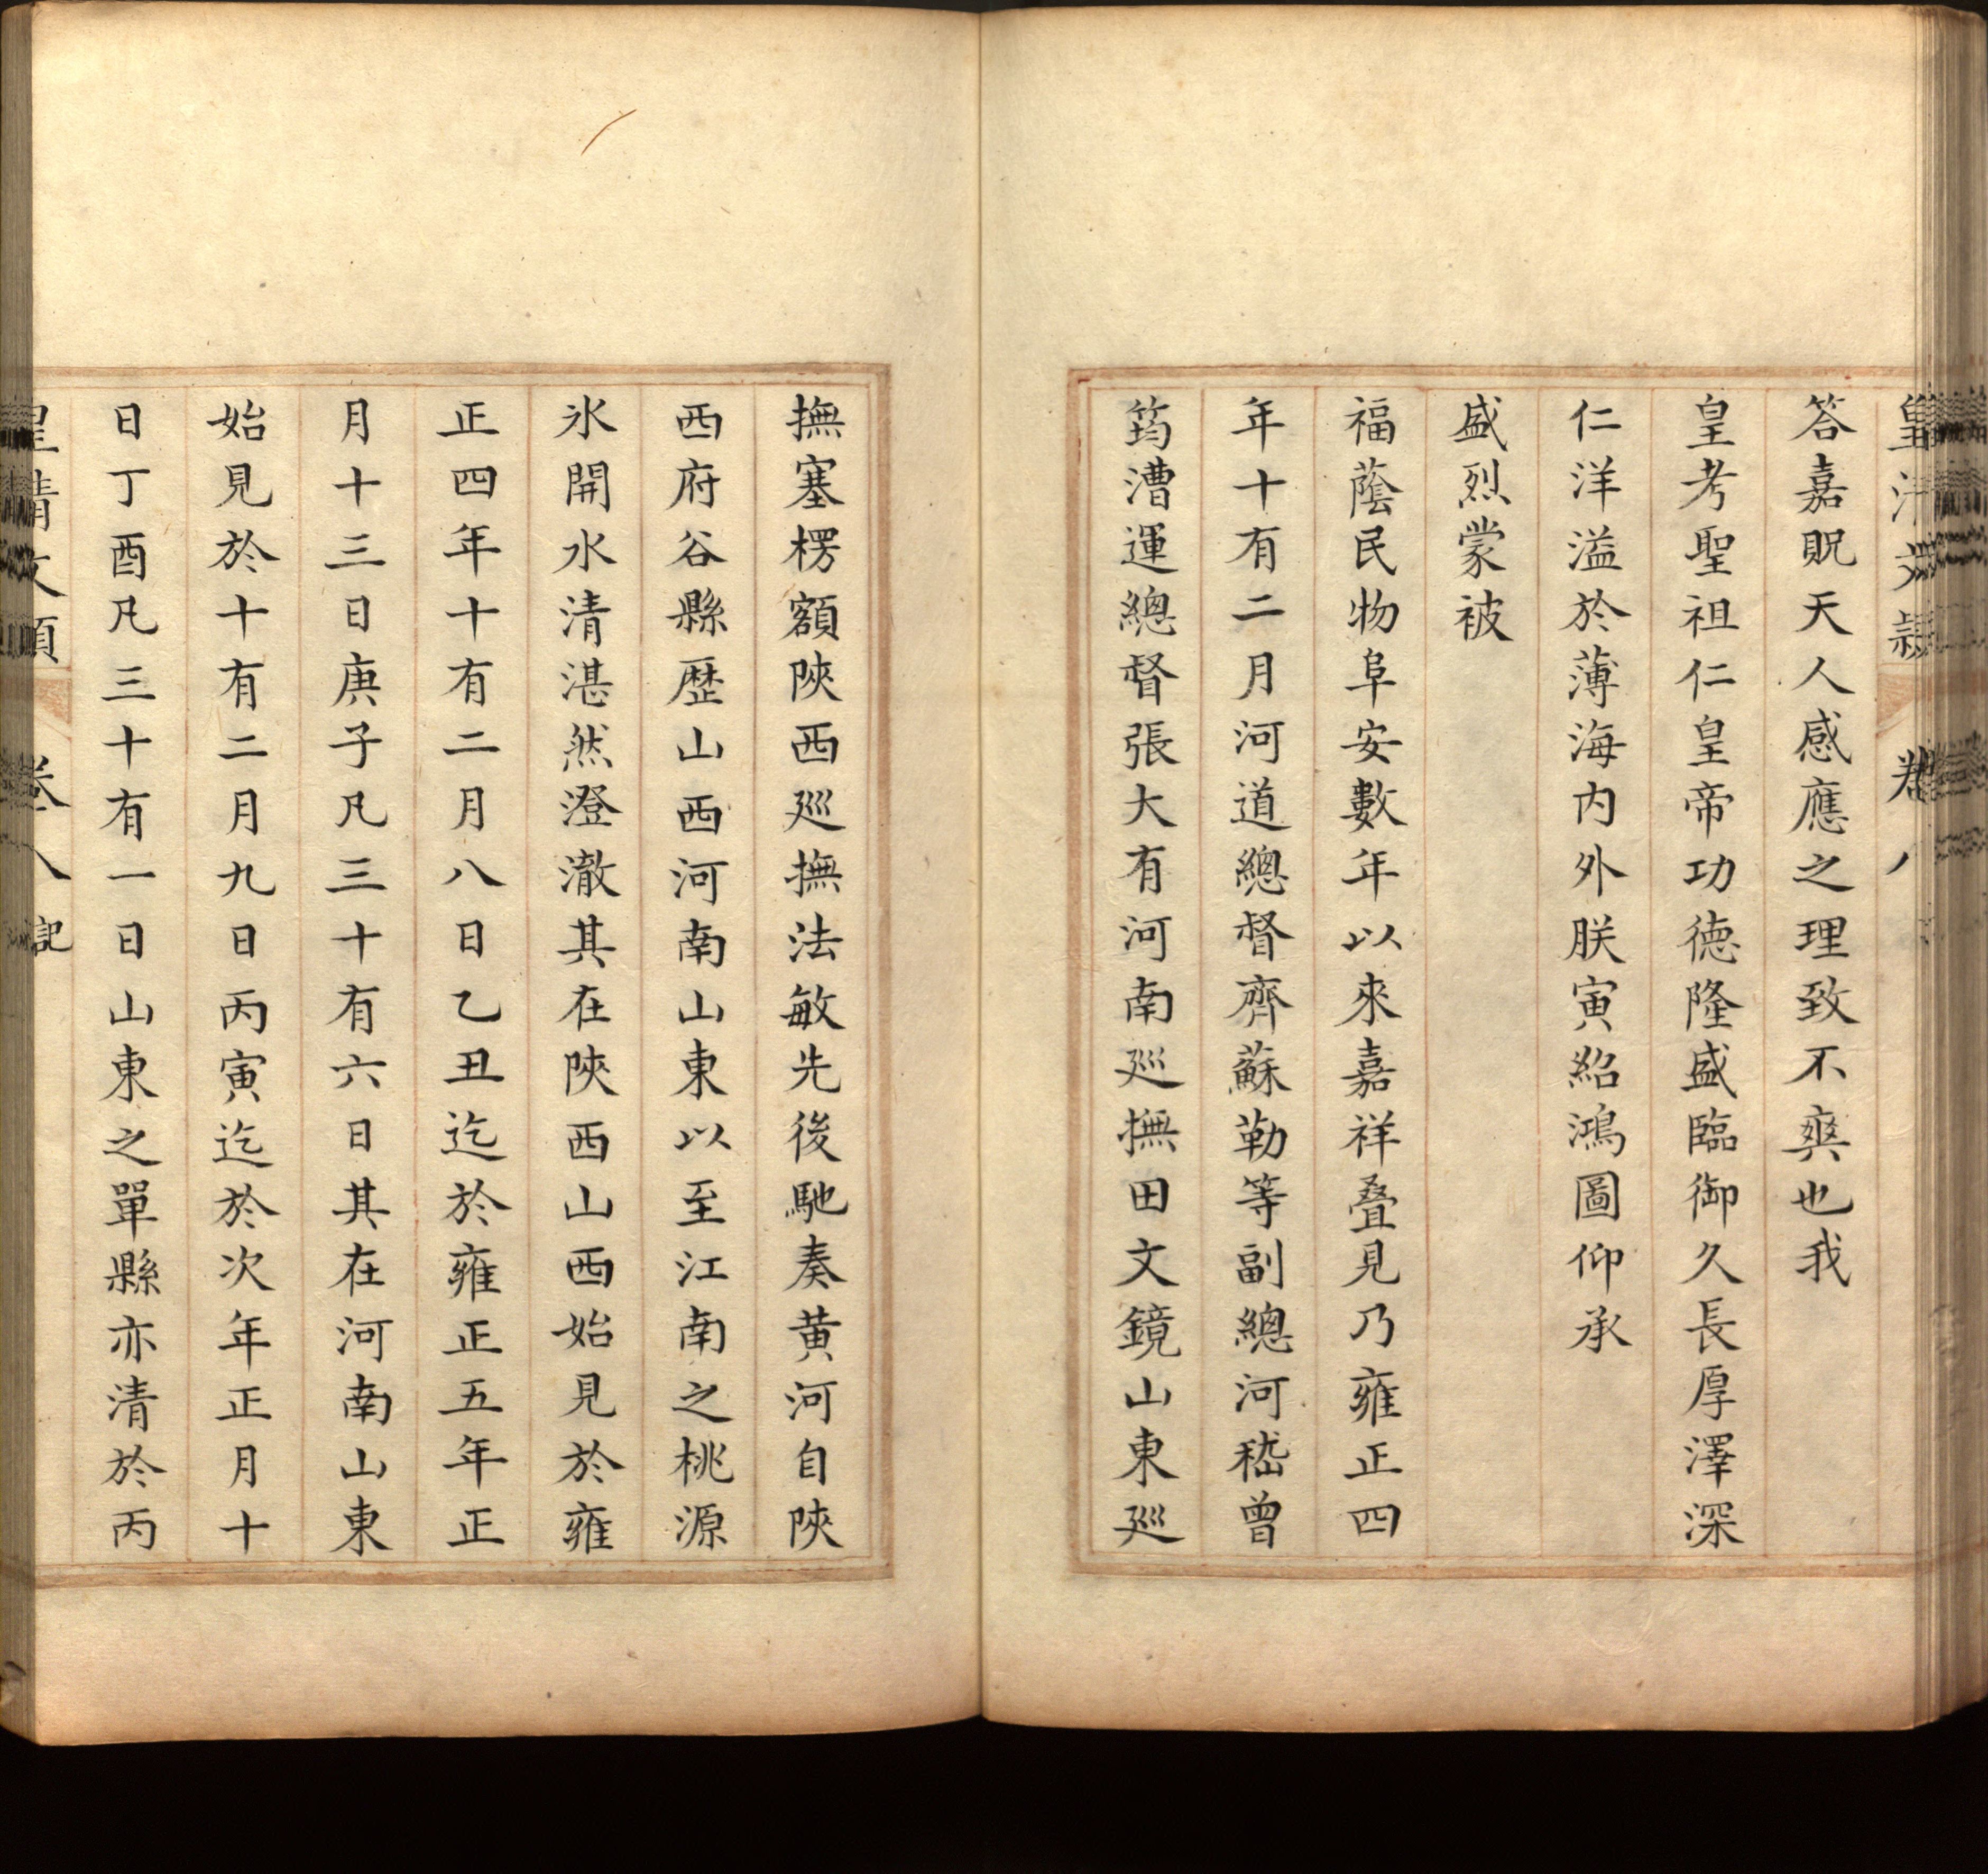 皇清文穎 卷八
答嘉貺天人感應之理致不爽也我
皇考聖祖仁皇帝功德隆盛臨御久長厚澤深
仁洋溢於薄海内外朕寅紹鴻圖仰承
盛烈蒙被
福蔭民物阜安數年以來嘉祥疊見乃雍正四
年十有二月河道總督齊蘇勒等副總河嵇曾
筠漕運總督張大有河南廵撫田文鏡山東廵
撫塞楞額陝西廵撫法敏先後馳奏黄河自陝
西府谷縣歴山西河南山東以至江南之桃源
氷開水清湛然澄澈其在陝西山西始見於雍
正四年十有二月八日乙丑迄於雍正五年正
月十三日庚子凡三十有六日其在河南山東
始見於十有二月九日丙寅迄於次年正月十
日丁酉凡三十有一日山東之單縣亦清於丙
皇清文穎 卷八 記